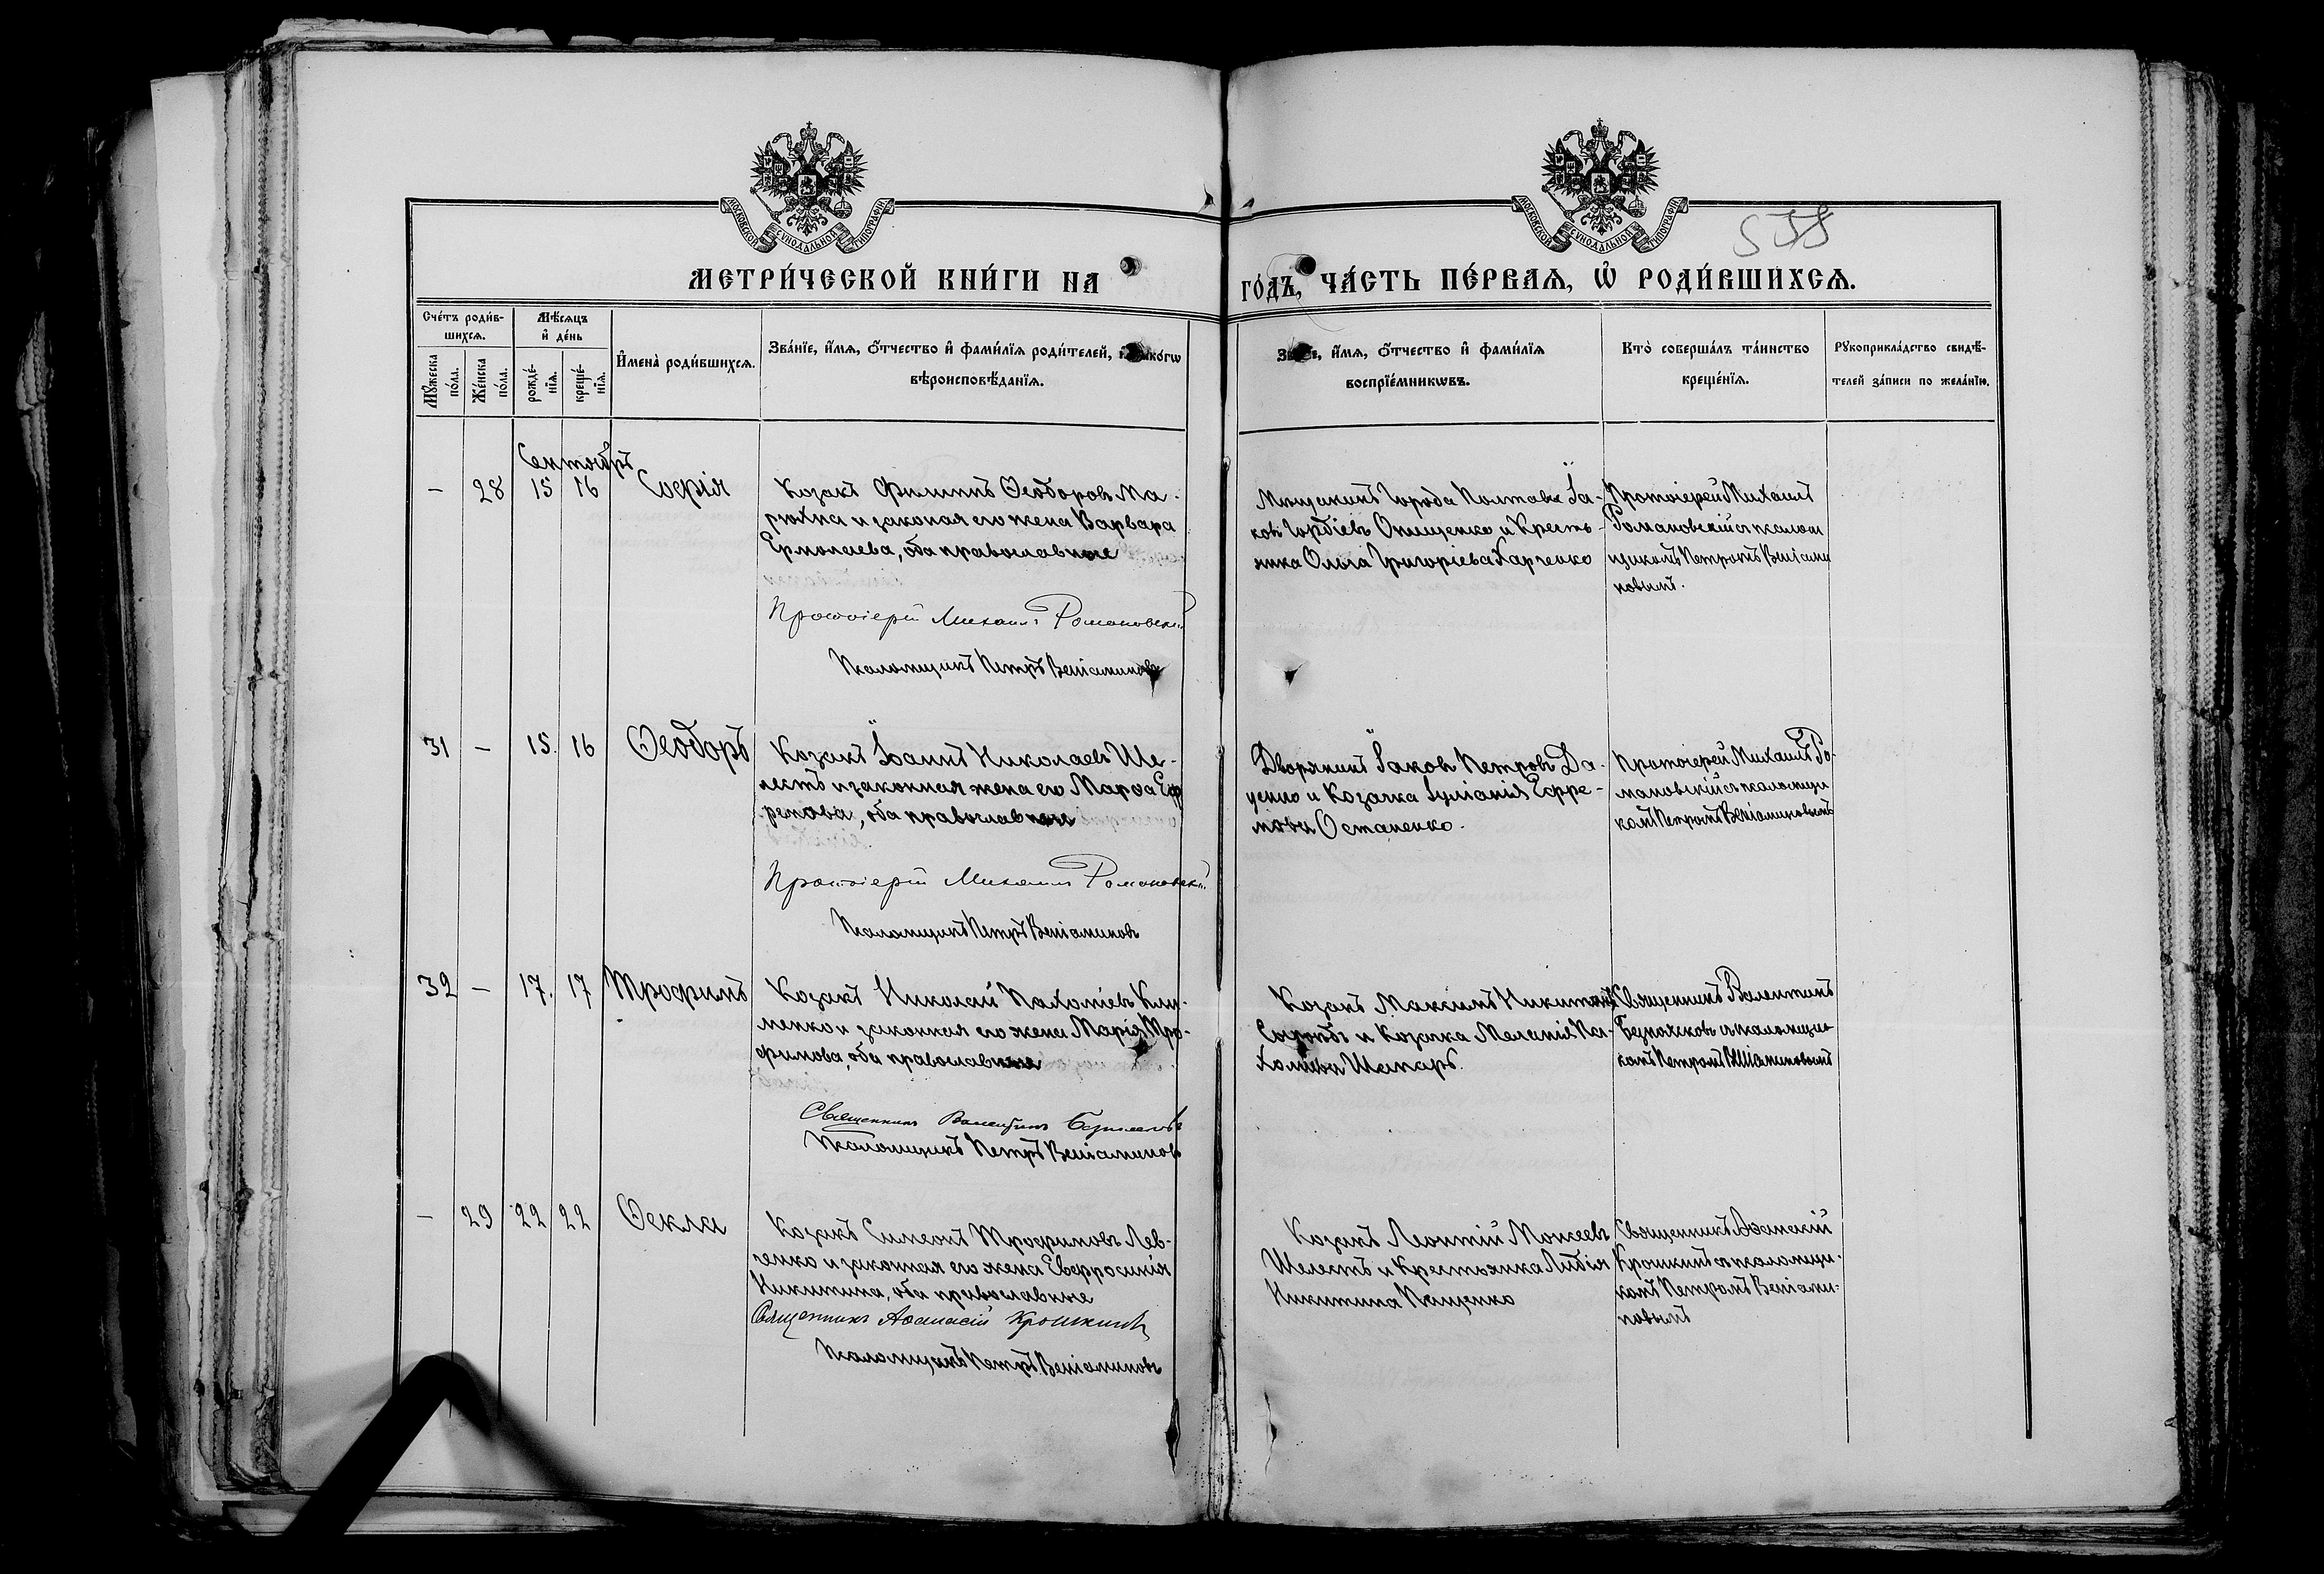 МОСКОВСКОЙ СУНОДАЛЬНОЙ ТИПОГРАФІИ
МОСКОВСКОЙ СУНОДАЛЬНОЙ ТИПОГРАФІИ
МЕТРИ́ЧЕСКОЙ КНИ́ГИ НА
ГО́ДЪ, ЧА́СТЬ ПЕ́РВАѦ, Ѡ҆ РОДИ́ВШИХСѦ.
Сче́тъ роди́в-
шихсѧ.
Мѣ́сѧцъ
и҆ де́нь
Мꙋ́жеска
по́ла.
Же́нска
по́ла.
рожде́-
нїѧ.
креще́-
нїѧ.
И҆мена̀ роди́вшихсѧ.
Зва́нїе, и҆́мѧ, ѻ҆́тчество и҆ фами́лїѧ роди́телей,
вѣроисповѣ́данїѧ.
и҆́мѧ, ѻ҆́тчество и҆ фами́лїѧ
воспрїе́мникѡвъ.
Кто̀ соверша́лъ та́инство
креще́нїѧ.
Рꙋкоприкла́дство свидѣ́-
телей за́писи по жела́нїю.
Сентябрь
— 28 15 16 Софія
Козакъ Филиппъ Ѳеодоровъ Ма-
рюхна и законая его жена Варвара
Ермолаева, оба православные
Протоіерей Михаилъ Романовскій
Псаломщикъ Петръ Веніаминовъ
Мѣщанинъ города Полтавы Іа-
ковъ Гордіевъ Онищенко и Кресть-
янка Ольга Григоріева Харченко
Протоіерей Михаилъ
Романовскій съ псалом
щикомъ Петромъ Веніами
новымъ.
31 — 15. 16 Ѳеодоръ
Козакъ Іоаннъ Николаевъ Ше-
лестъ и законная жена его Марѳа Еф
ремова, оба православные
Протоіерей Михаилъ Романовскій
Псаломщикъ Петръ Веніаминовъ
Дворянинъ Іаковъ Петровъ Да-
ценко и Козачка Іуліанія Ефре-
мова Остапенко.
Протоіерей Михаилъ Ро-
мановскій съ псаломщи
комъ Петромъ Веніаминовымъ
32 — 17. 17 Трофимъ
Козакъ Николай Пахоміевъ Кли-
менко и законная его жена Марія Тро-
фимова, оба православные
Священникъ Валентинъ
Псаломщикъ Петръ Веніаминовъ
Козакъ Максимъ Никитинъ
и Козачка Меланія Па-
хоміева Шапаръ.
Священникъ Валентинъ
съ псаломщи
комъ Петромъ Веніаминовымъ
— 29 22 22 Ѳекла
Козакъ Симеонъ Трофимовъ Лев-
ченко и законная его жена Евфросинія
Никитина, оба православные
Священникъ Аѳанасій Крошкинъ
Псаломщикъ Петръ Веніаминовъ
Козакъ Леонтій Моисеевъ
Шелестъ и Крестьянка Лидія
Никитина Пащенко
Священникъ Аѳанасій
Крошкинъ съ псаломщи-
комъ Петромъ Веніами-
новымъ